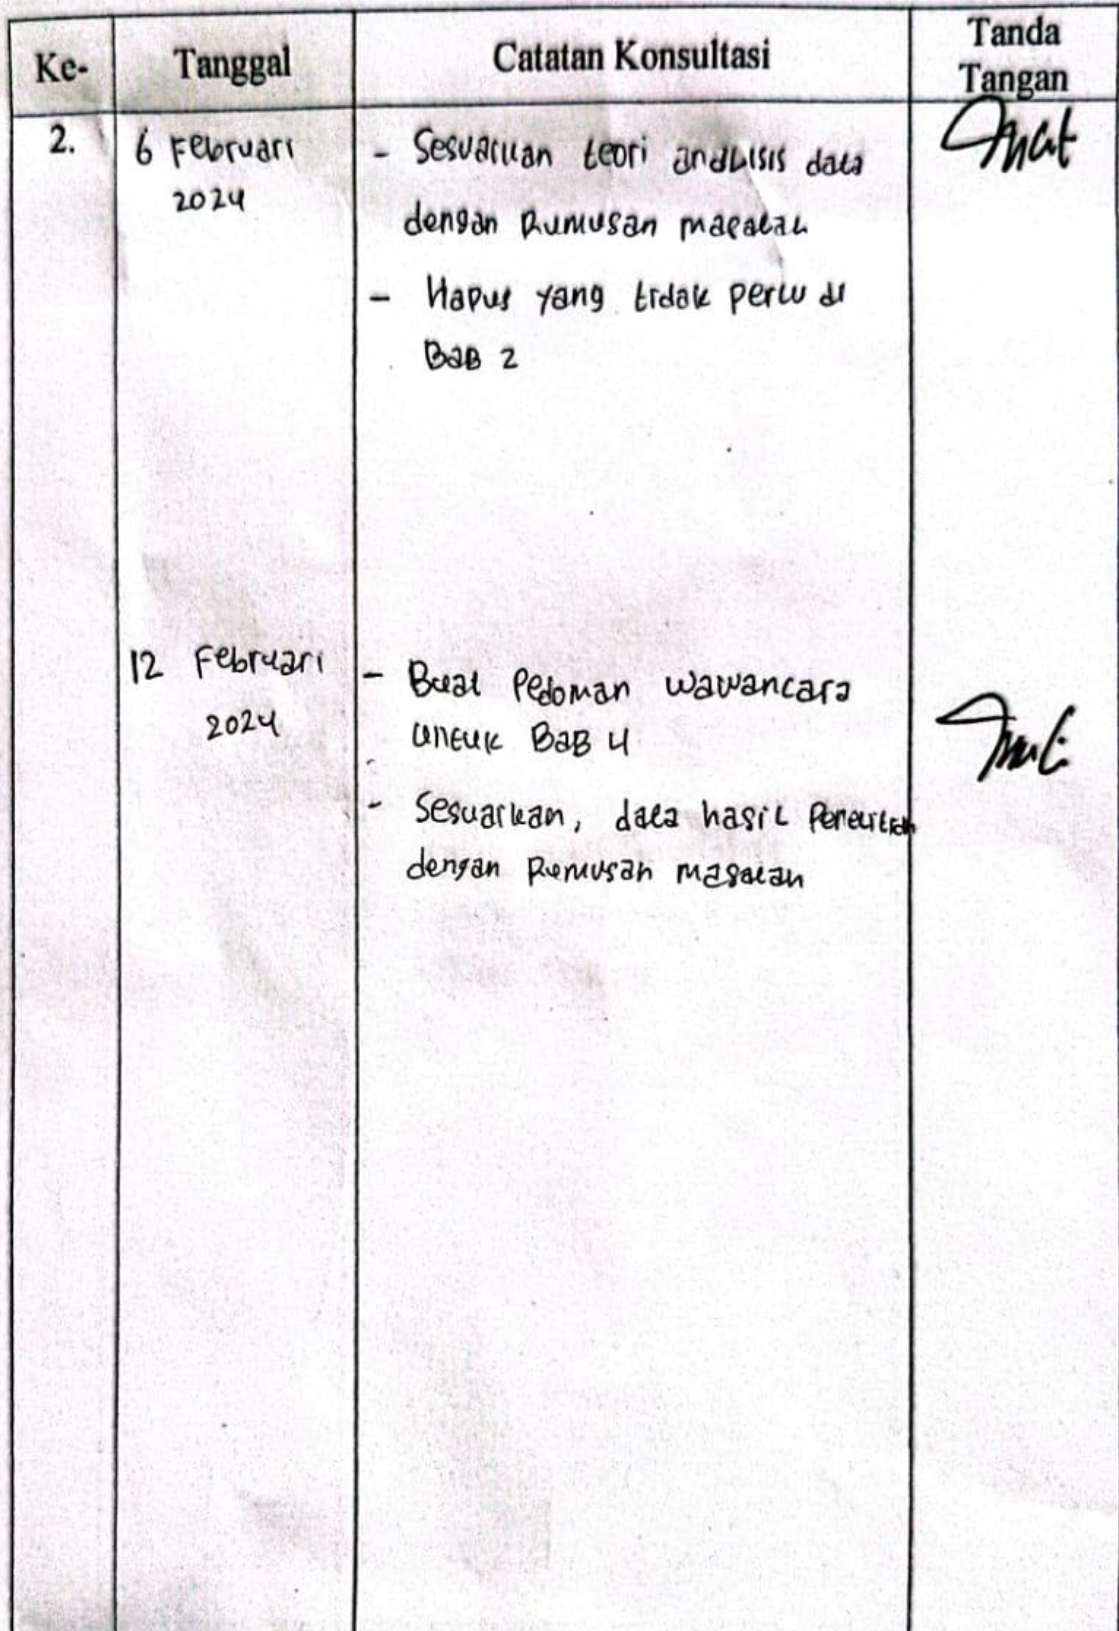 Ke- Tanggal Catatan Konsultasi Tanda Tangan
2. 6 Februari 2024
- Sesuaikan teori analisis data
dengan Rumusan masalah
- Hapus yang tidak perlu di
Bab 2
12 Februari 2024
- Buat Pedoman wawancara
untuk Bab 4
- Sesuaikan, data hasil Penelitian
dengan Rumusan masalah